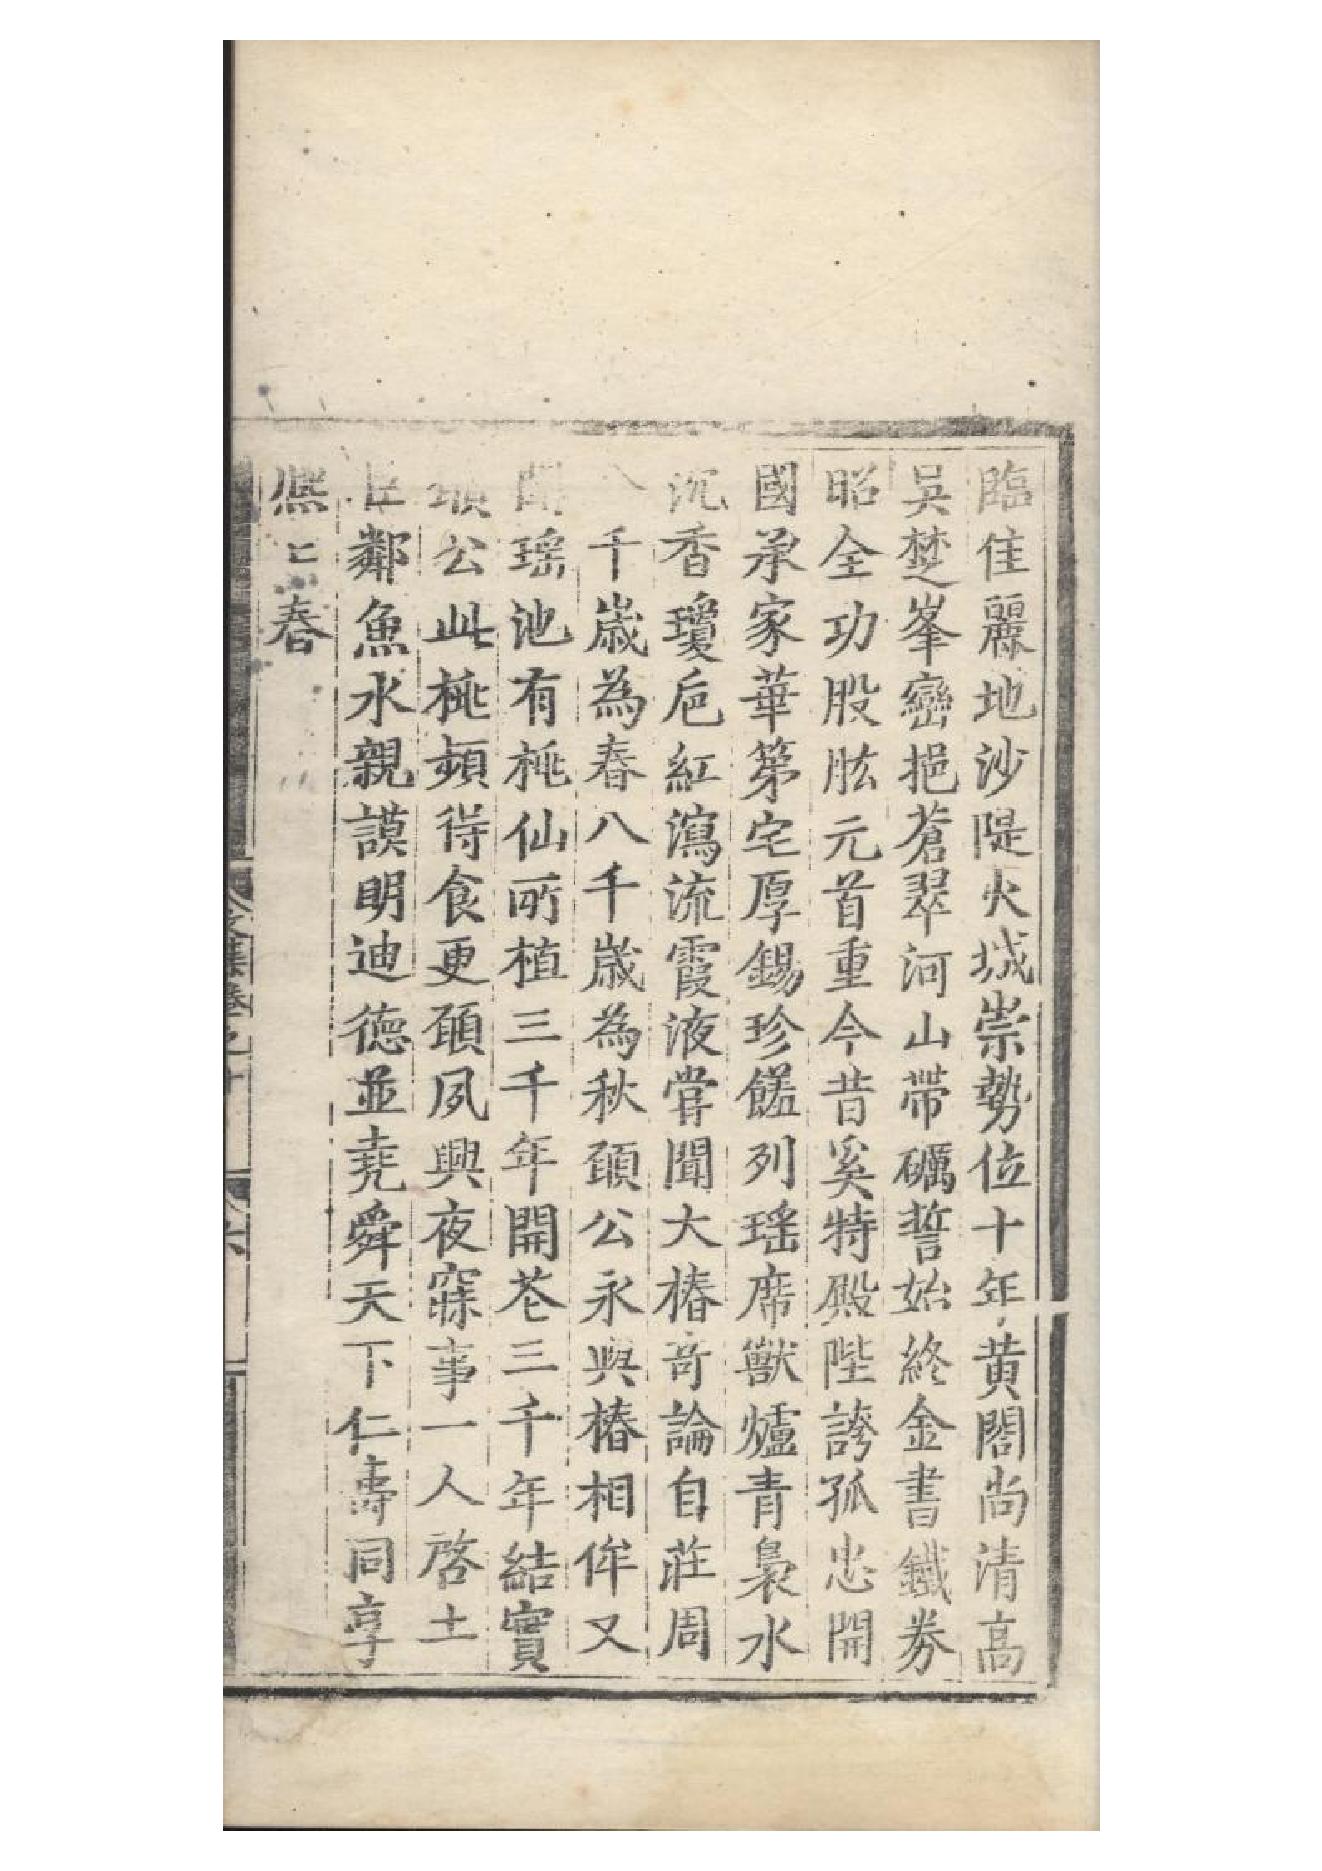 臨佳麗地沙隄火城崇勢位十年黄閣尚清高
吳楚峯巒挹蒼翠河山帶礪誓始終金書鐵券
昭全功股肱元首重今昔奚特殿陛誇孤忠開
國承家華第宅厚錫珍饈列瑶席獸爐青裊水
沉香瓊巵紅瀉流霞液甞聞大椿奇論自莊周
八千歲為春八千歲為秋頋公永與椿相侔又
聞瑶池有桃仙所植三千年開花三千年結實
頋公此桃頻得食更頋夙興夜寐事一人啓土
鄰魚水親謨明迪德並堯舜天下仁壽同享
熈〻春
文集卷之十
六